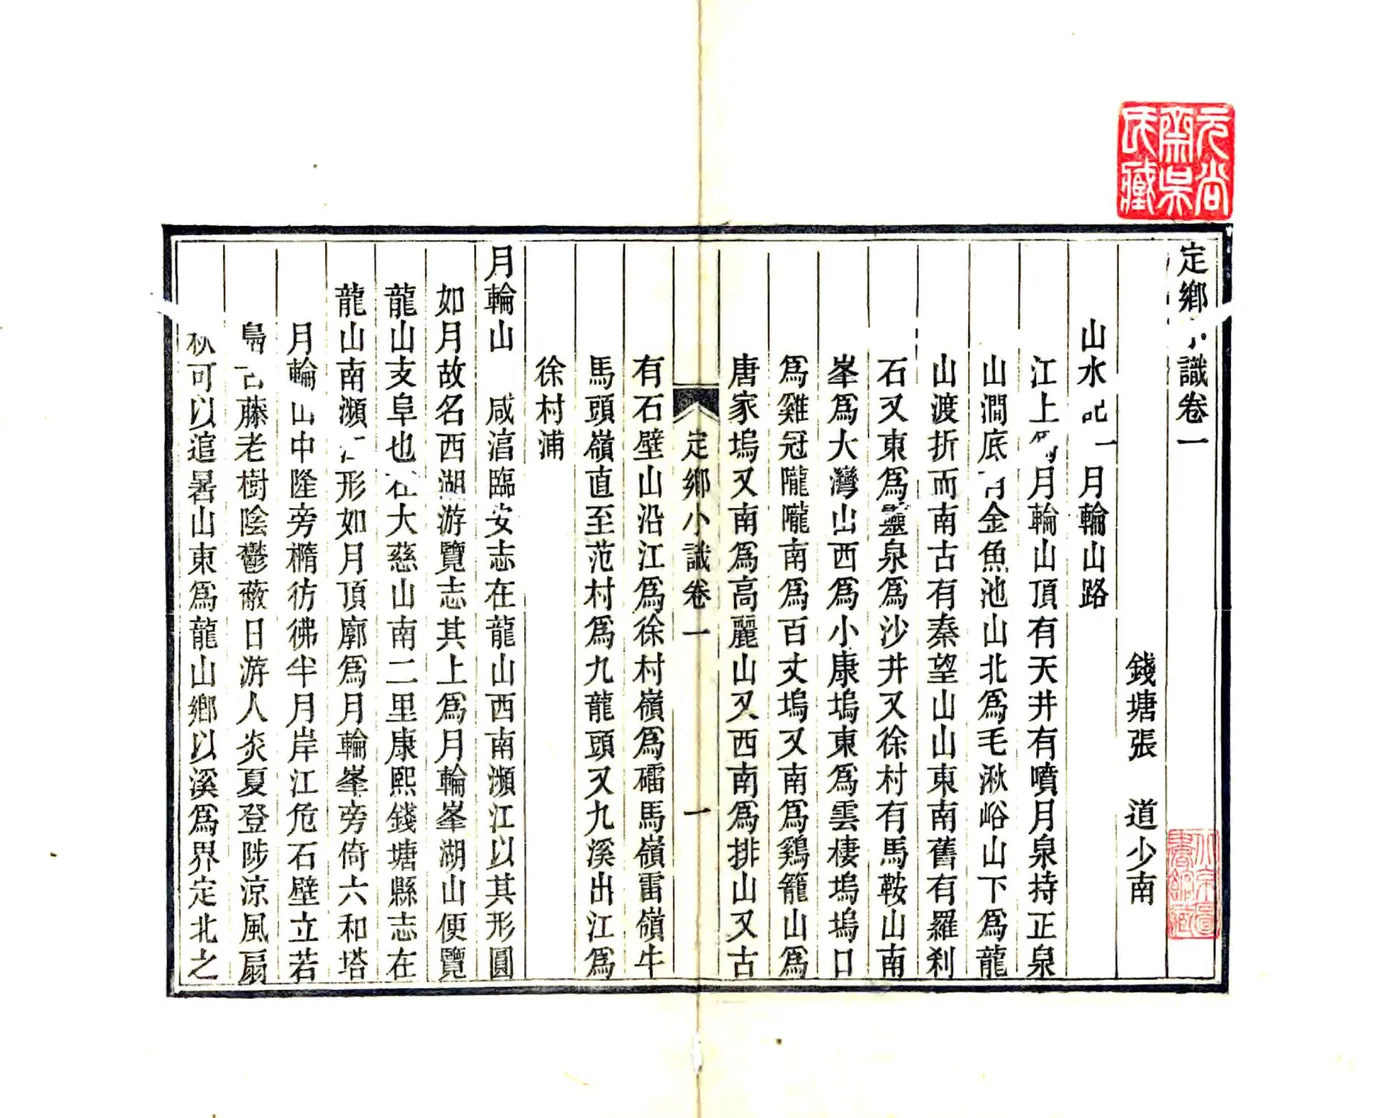 定鄉小識卷一
錢塘張　道少南
山水記一　月輪山路
江上爲月輪山頂有天井有噴月泉持正泉
山澗底有金魚池山北爲毛湫峪山下爲龍
山渡折而南古有秦望山山東南舊有羅刹
石又東爲靈泉爲沙井又徐村有馬鞍山南
峯爲大灣山西爲小康塢東爲雲棲塢塢口
爲雞冠隴隴南爲百丈塢又南爲鷄籠山爲
唐家塢又南爲高麗山又西南爲排山又古
有石壁山沿江爲徐村嶺爲礌馬嶺雷嶺牛
馬頭嶺直至范村爲九龍頭又九溪出江爲
徐村浦
月輪山　咸淳臨安志在龍山西南瀕江以其形圓
如月故名西湖游覽志其上爲月輪峯湖山便覽
龍山支阜也在大慈山南二里康熙錢塘縣志在
龍山南瀕江形如月頂廓爲月輪峯旁倚六和塔
月輪山中隆旁橢彷彿半月岸江危石壁立若
古藤老樹陰鬱蔽日游人炎夏登陟涼風扇
秋可以逭暑山東爲龍山鄉以溪爲界定北之
定鄉小識卷一
一
元尚齋吳氏藏